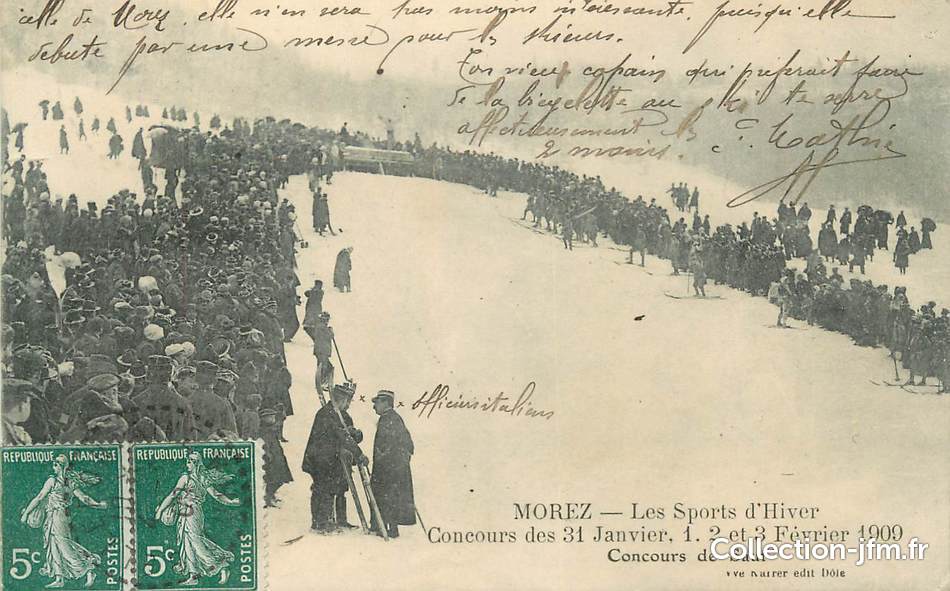 celle de Morez, elle n'en sera pas moins intéressante, puisqu'elle
débute par une messe pour les skieurs.
Ton vieux copain qui préfèrerait faire
de la bicyclette au ski te serre
affectueusement les
2 mains. C. Mathie
x x officiers italiens
RÉPUBLIQUE FRANÇAISE
5c POSTES
RÉPUBLIQUE FRANÇAISE
5c POSTES
MOREZ — Les Sports d'Hiver
Concours des 31 Janvier, 1. 2 et 3 Février 1909
Concours de
Vve Karrer edit Dôle
www.Collection-jfm.fr